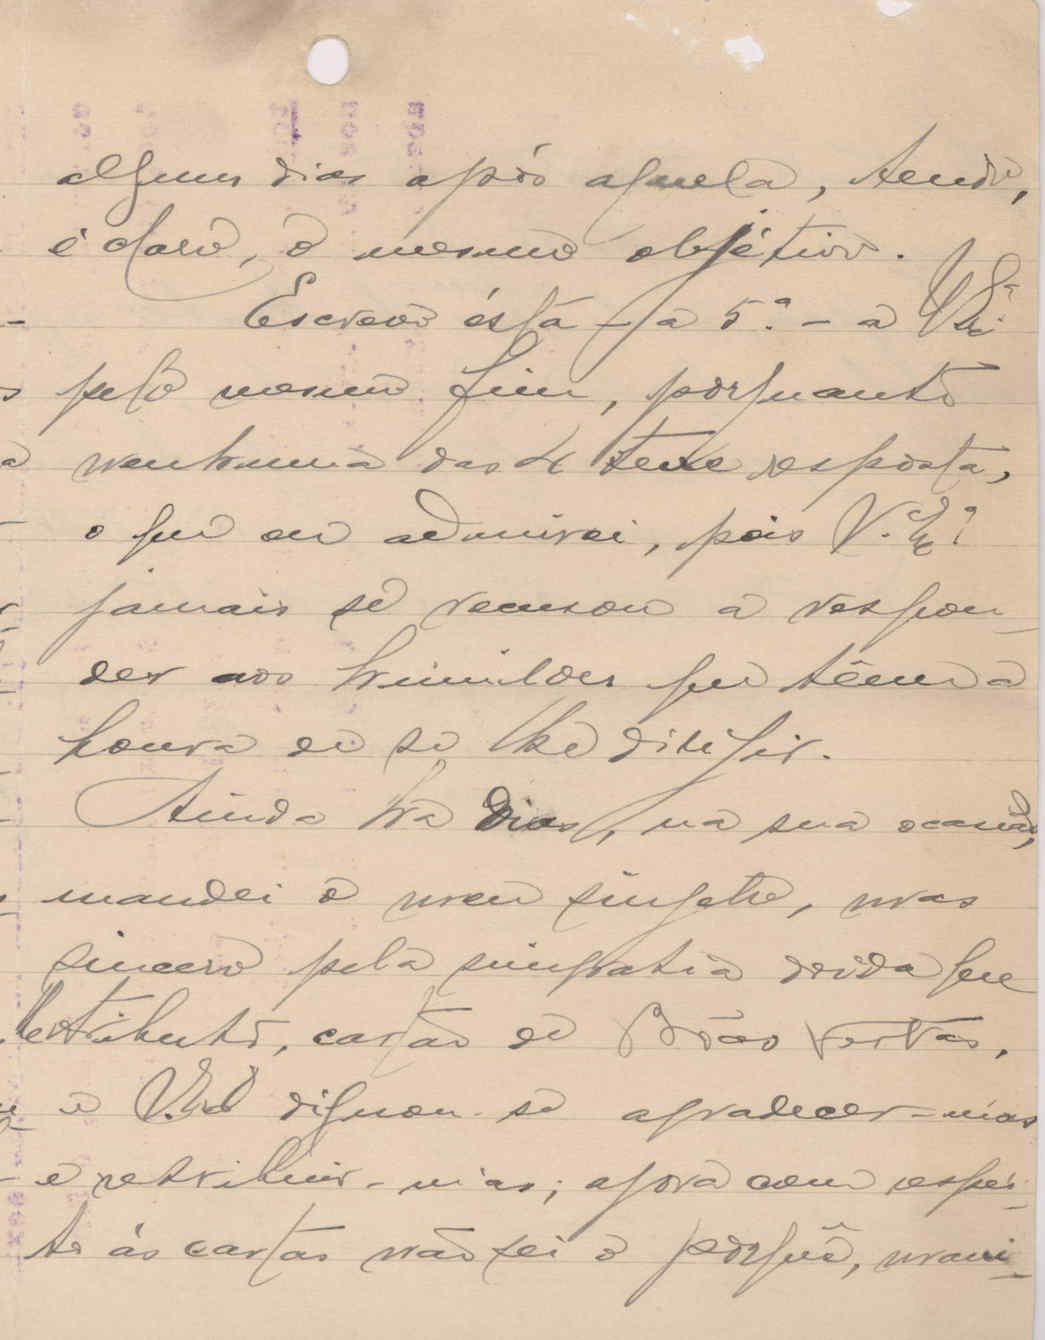 alguns dias após aquela, tendo,
é claro, o mesmo objétivo.
Escrevo ésta - a 5.ª - a V. Exª
pelo mesmo fim, porquanto
nenhuma das 4 teve resposta,
o que eu admirei, pois V. Exª
jamais se recusou a respon-
der aos humildes que têem a
honra de se lhe dirigir.
Ainda ha dias, na sua ocasião,
mandei o meu singelo, mas
sincero pela simpatia doida que
tributo, cartão de Bôas Festas,
e V. Exª dignou-se agradecer-mas
e retribuir-mas; agora com respei-
to ás cartas não sei o porquê,